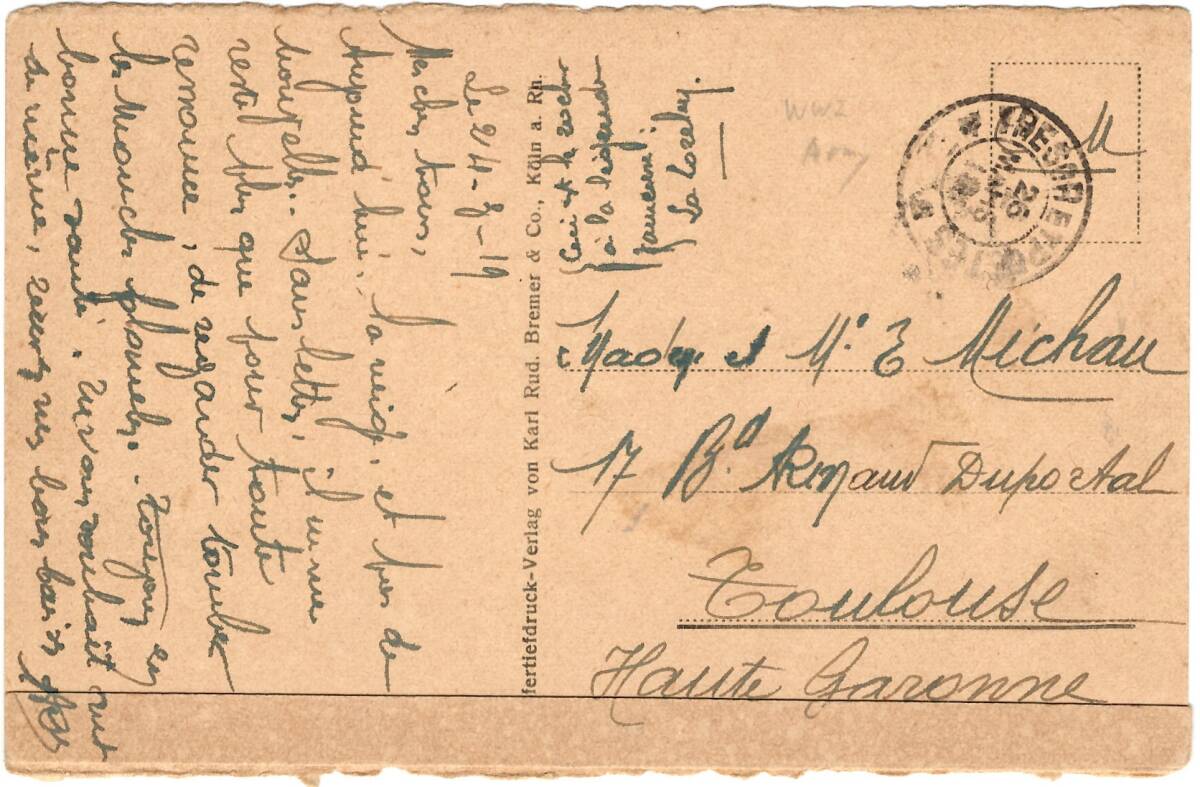 Le 24-3-19
Mes chers tous,
Aujourd'hui, la neige, et pas de
nouvelles. Sans lettre, il ne me
reste plus que pour toute
ressource, de regarder tomber
les mouches blanches. Toujours en
bonne santé. Je vous souhait
de même, recevez mes bons baisers
Ceci est le rocher
à la légende
La Loreley.
fertiefdruck-Verlag von Karl Rud. Bremer & Co., Köln a. Rh.
WW2
Army
TRESOR ET POSTES
26
M
E Michau
17 Bd Armand Duportal
Toulouse
Haute Garonne